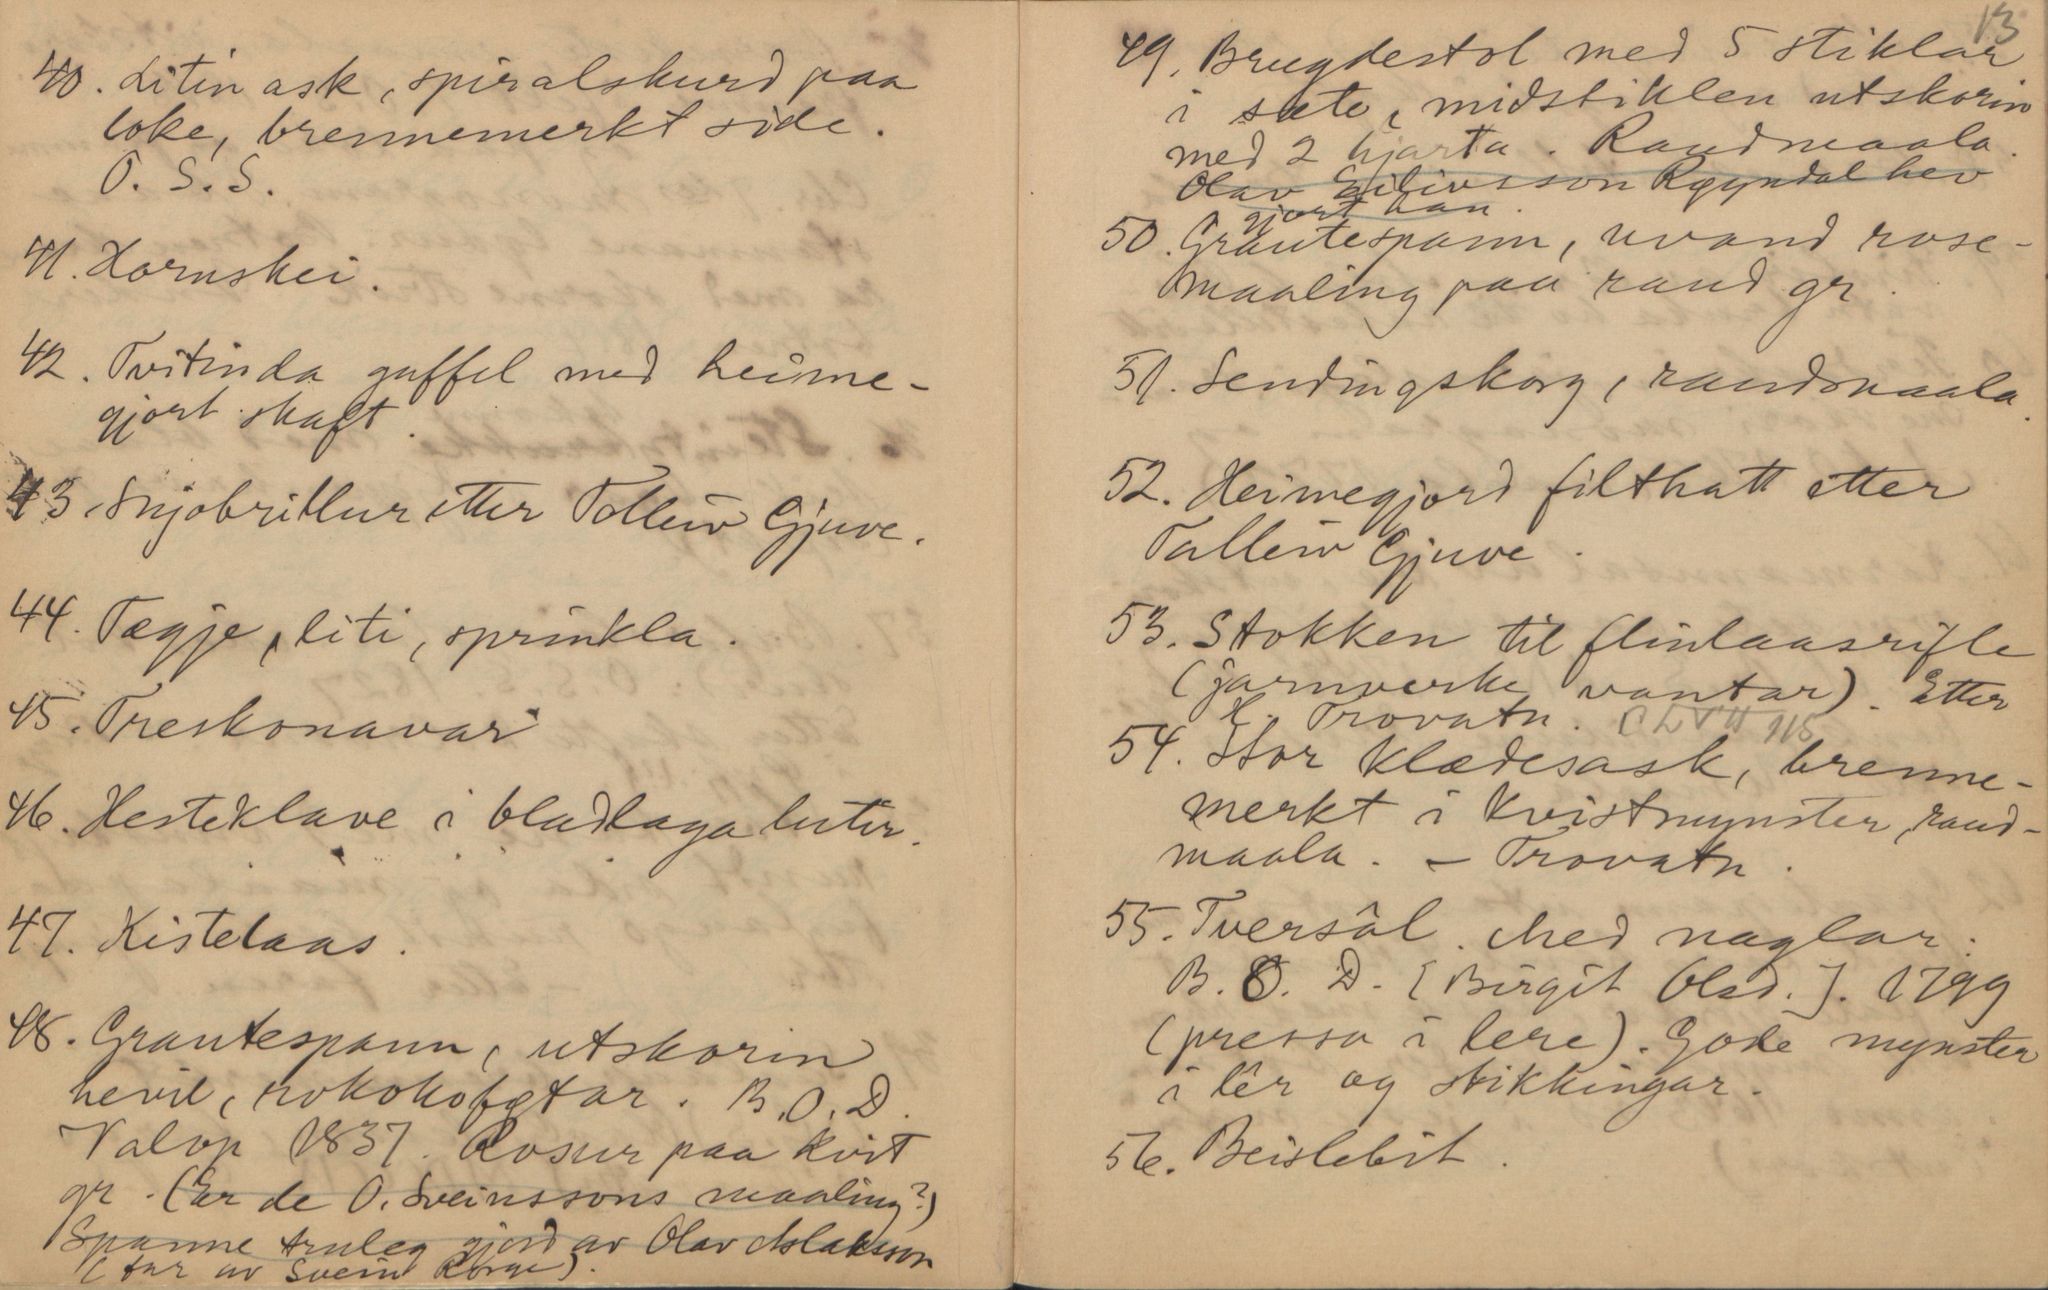 40. Litin ask, spiralskurd paa
loke, brennemerkt side.
O. S. S.
41. Hornskei.
42. Tvitinda gaffel med heime-
gjort skaft.
43. Snjobrillur etter Tolleiv Gjuve.
44. Tægje, liti, sprinkla.
45. Treskonavar
46. Hesteklave i bladlaga lutir.
47. Kistelaas.
48. Grautespann, utskorin
hevil, rokokoføtar. B.O.D.
Valop 1837. Rosur paa kvit
gr. (Er de O. Sveinssons maaling?)
Spanne truleg gjord av Olav Aslaksson
(far av Svein
13
49. Brugdestol med 5 stiklar
i sæte, midstiklen utskorin
med 2 hjarta. Raudmaala.
Olav Eilivsson Rgyndal hev
gjort han.
50. Grautespann, uvand rose-
maaling paa raud gr.
51. Sendingskorg, raudmaala.
52. Heimegjord filthatt etter
Talleiv Gjuve.
53. Stokken til flintlaasrifle
(jarnverke vantar). Etter
H. Trovatn.
54. Stor klædesask, brenne-
merkt i kvistmynster, raud-
maala. – Trovatn.
55. Tversâl. Med naglar.
B. O. D. [Birgit Olsd.]. 1799
(pressa i lere). Gode mynster
i lêr og stikkingar.
56. Beislebit.